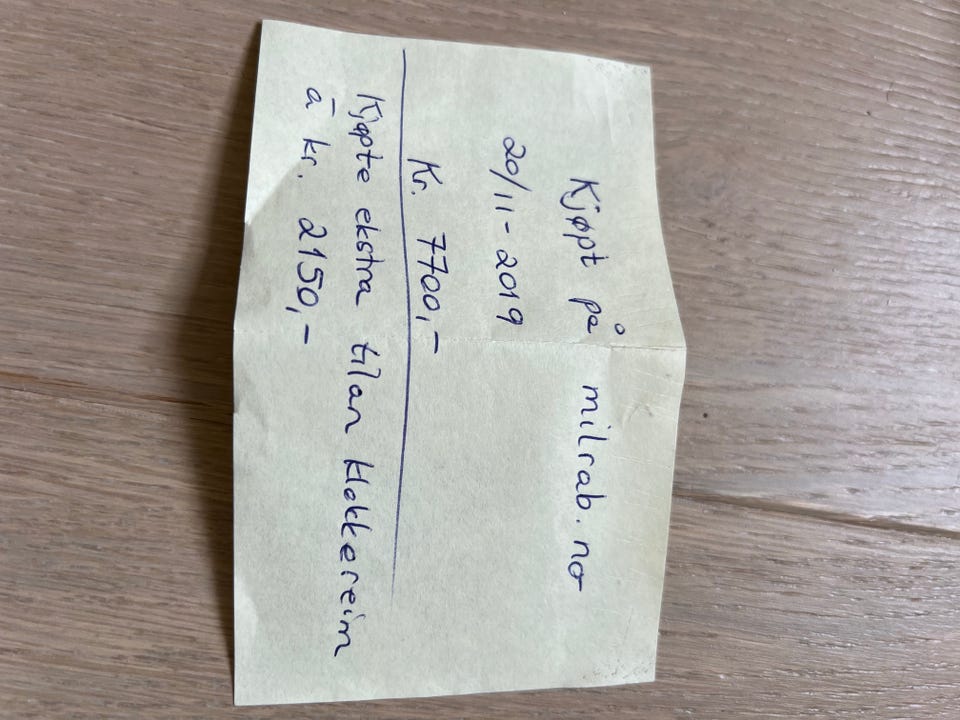 Kjøpt på milrab.no
20/11-2019
Kr. 7700,-
Kjøpte ekstra tilan klokkereim
à kr. 2150,-